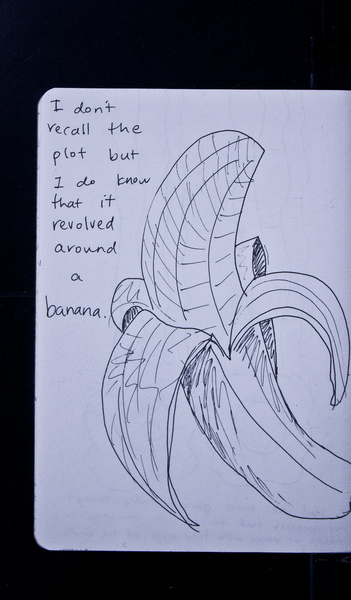 I don't
recall the
plot but
I do know
that it
revolved
around
a
banana.